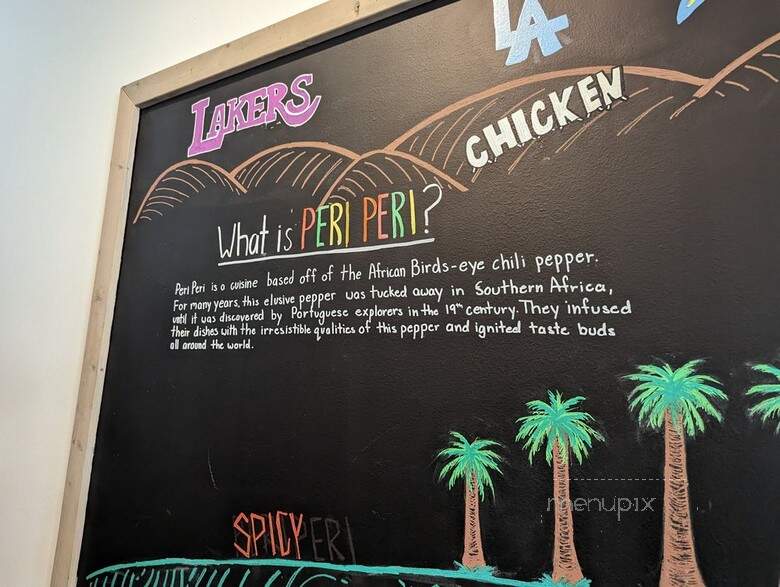 LAKERS
LA
CHICKEN
What is PERI PERI?
Peri Peri is a cuisine based off of the African Birds-eye chili pepper.
For many years, this elusive pepper was tucked away in Southern Africa,
until it was discovered by Portuguese explorers in the 19th century. They infused
their dishes with the irresistible qualities of this pepper and ignited taste buds
all around the world.
menupix
SPICY PERI